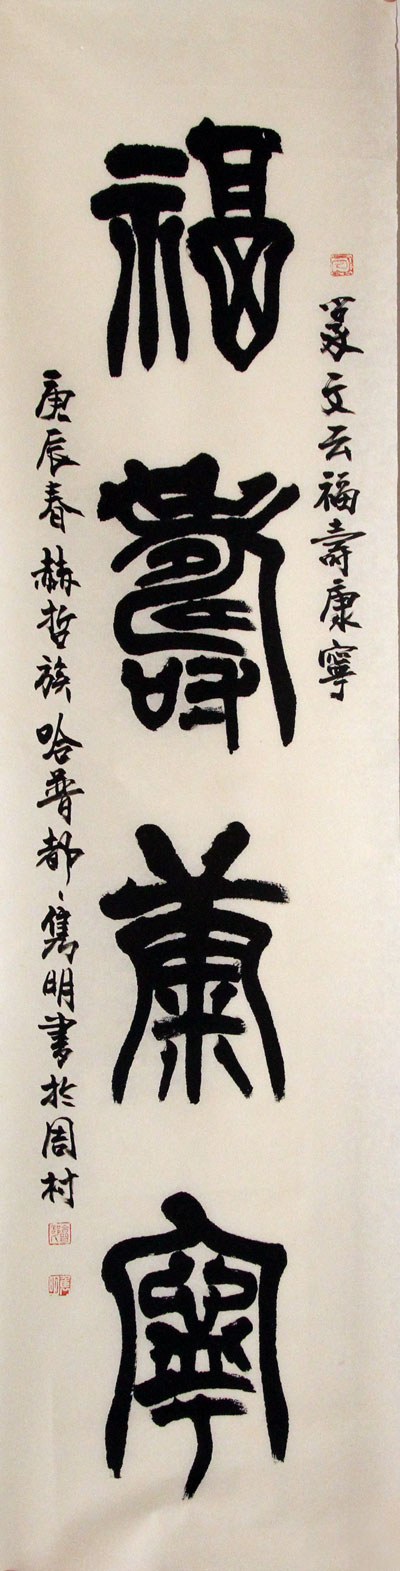 篆文云福壽康寧
福壽康寧
庚辰春赫哲族哈普都、雋明書於周村